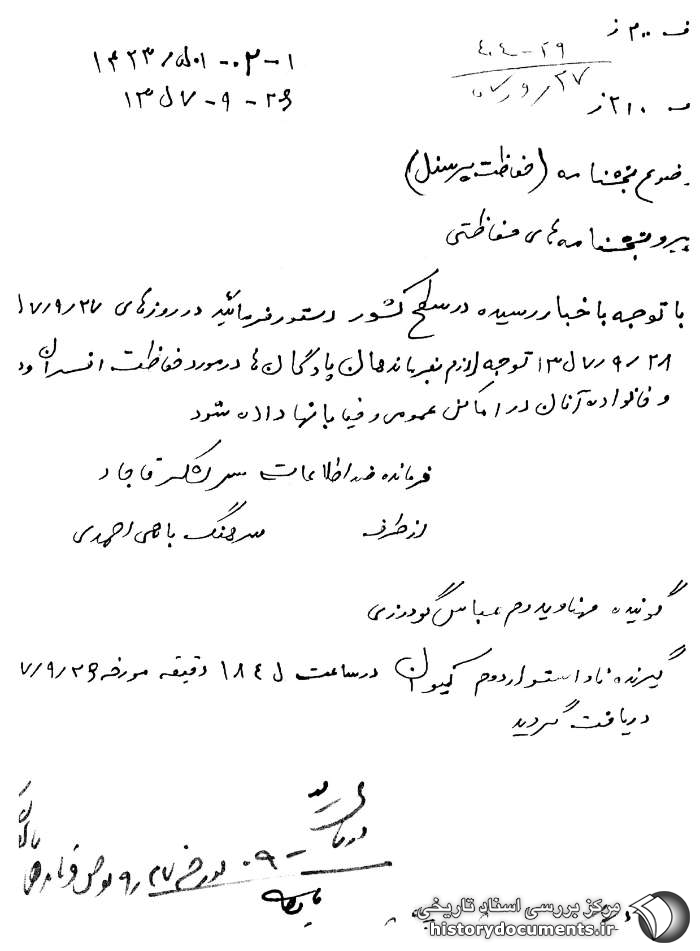 ف ۲۰۰ ز
۲۹-۴۰۴
۲۷/۹/۵۷
۲۱۰ ز
۱-۰۲-۵۰۱/۱۴۲۳
۲۶-۹-۱۳۵۷
موضوع بخشنامه (حفاظت پرسنل)
پیرو بخشنامه های حفاظتی
با توجه باخبار رسیده در سطح کشور دستور فرمائید در روزهای ۲۷/۹/۵۷
۲۸/۹/۱۳۵۷ توجه لازم بفرماندهان پادگان ها در مورد حفاظت افسران
و خانواده آنان در اماکن عمومی و خیابانها داده شود
فرمانده ضد اطلاعات سرلشگر قاجار
از طرف سرهنگ باهی احمدی
گوینده مهناوی دوم عباس گودرزی
گیرنده ناو استوار دوم کیوان در ساعت ۱۸۴۵ دقیقه مورخه ۲۶/۹/۵۷
دریافت گردید
مورخ ۲۷/۹ بعرض فرمانده
مرکز بررسی اسناد تاریخی
historydocuments.ir